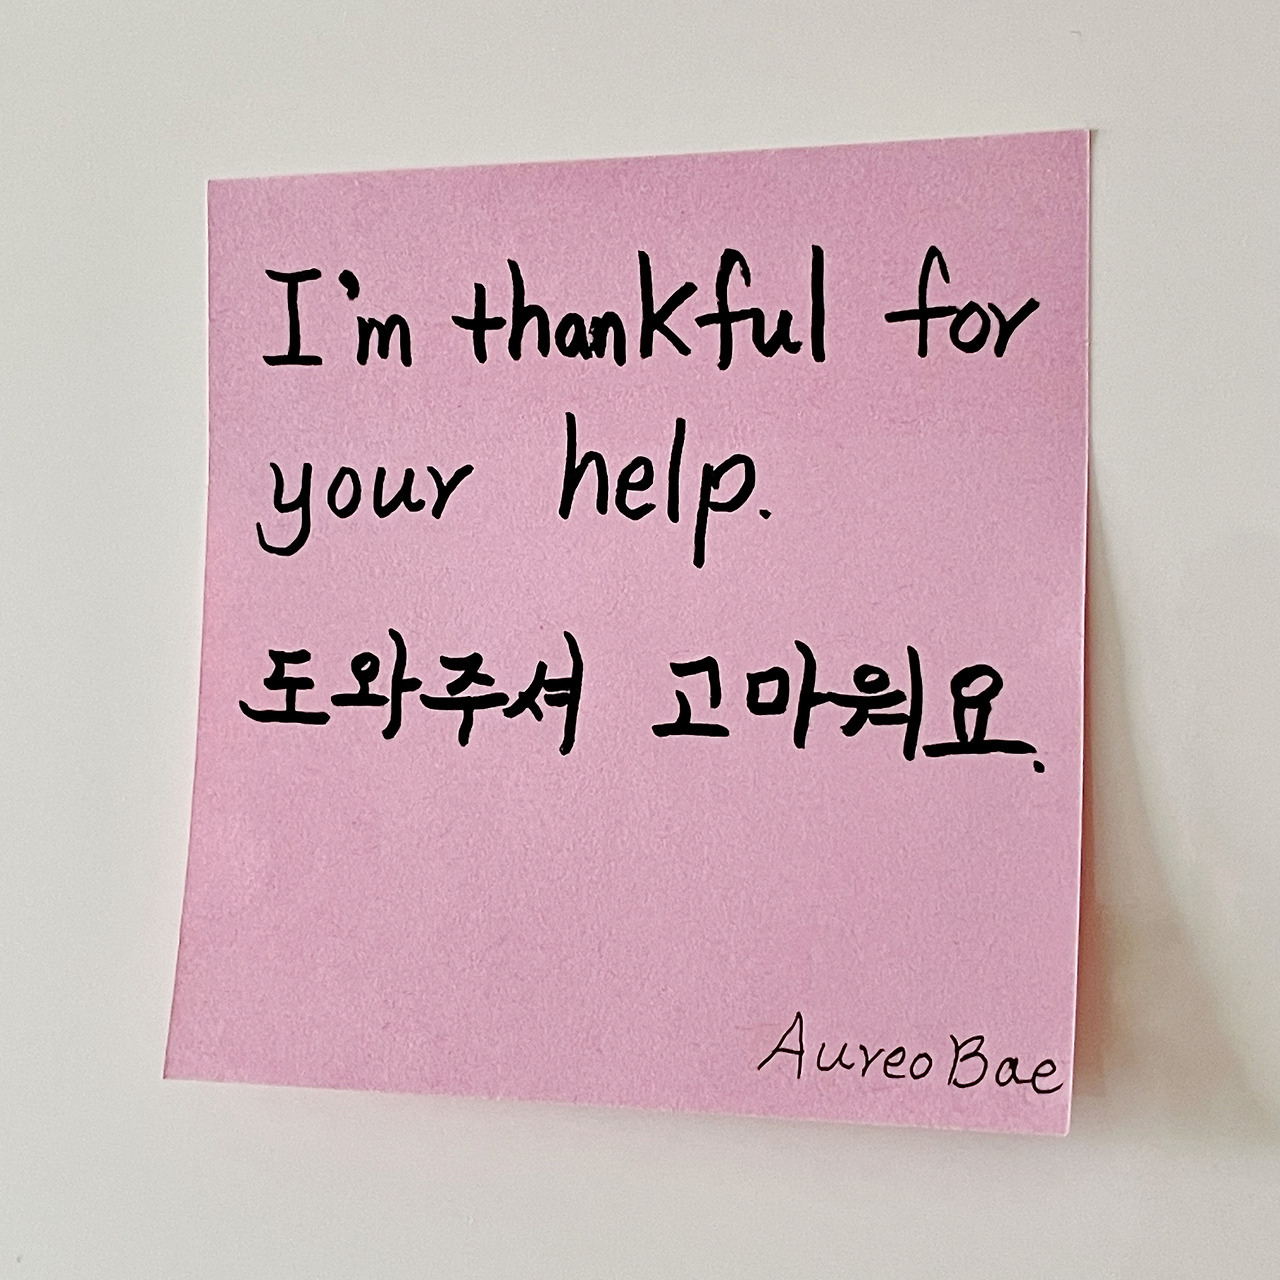 I'm thankful for
your help.
도와주셔 고마워요.
Aureo Bae